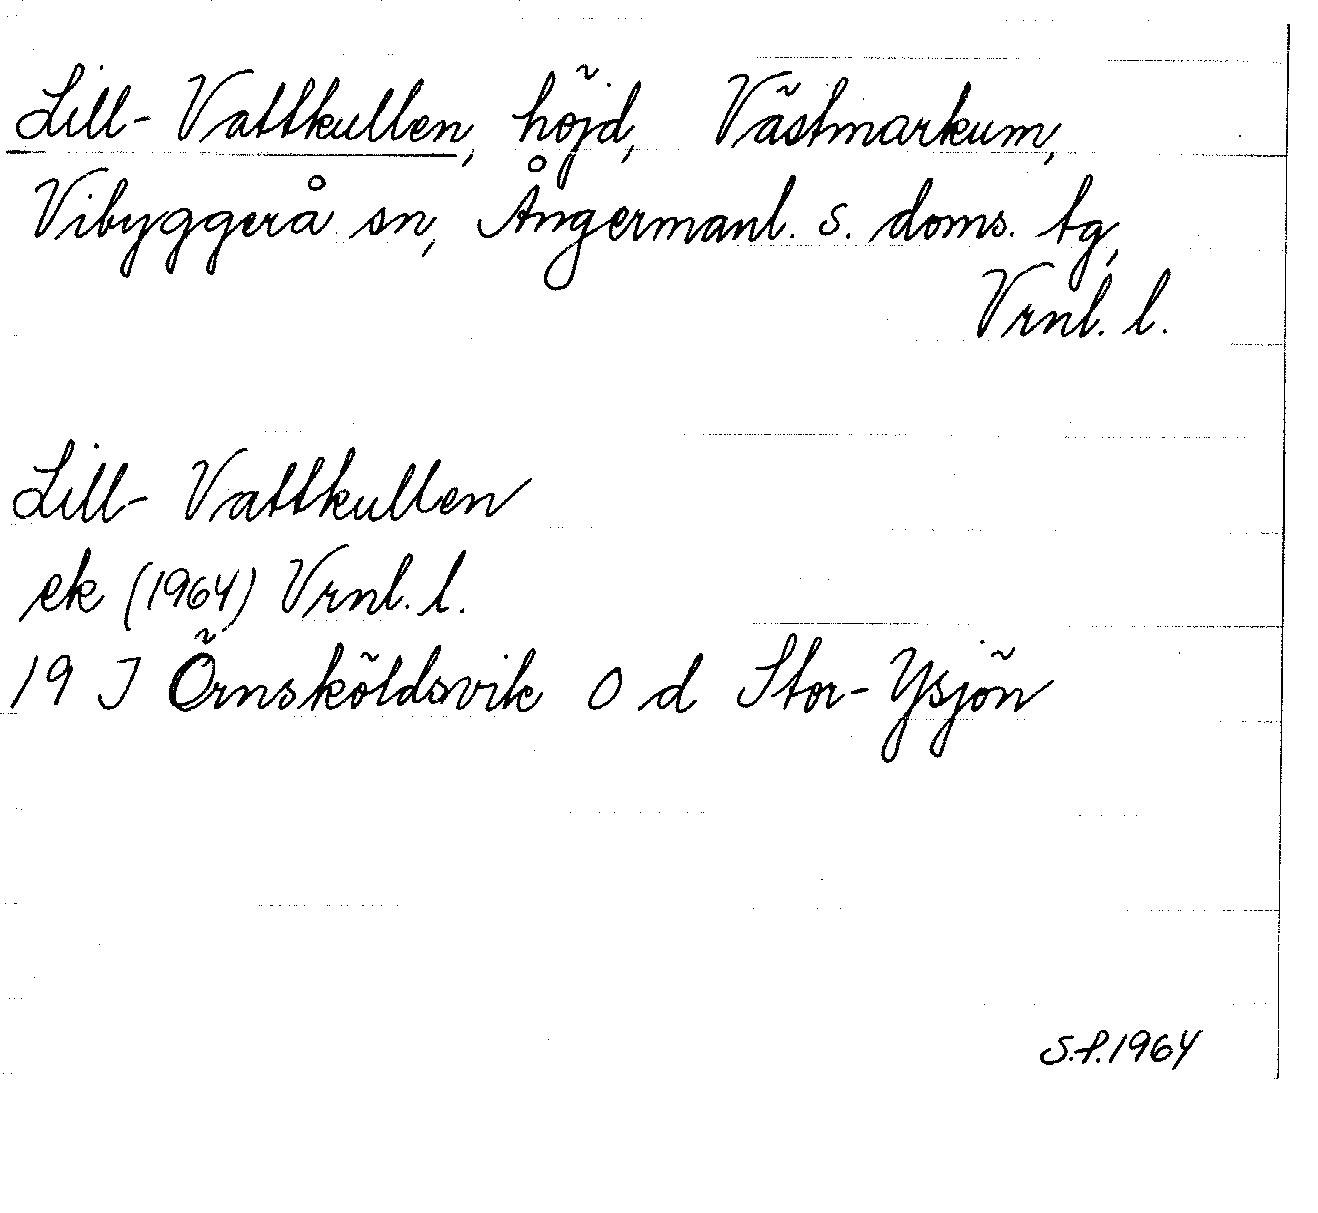 Lill-Vattkullen, höjd, Västmarkum,
Vibyggerå sn, Ångermanl. s. doms. tg,
Vrnl. l.
Lill-Vattkullen
ek (1964) Vrnl. l.
19 J Örnsköldsvik O d Stor-Ysjön
S.P.1964